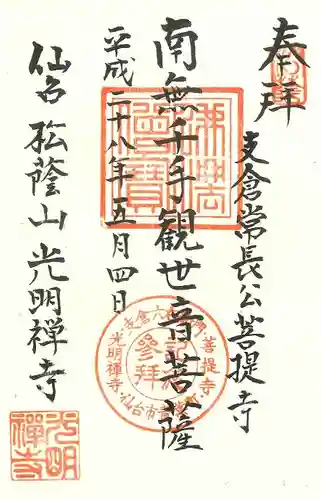 奉拝
支倉常長公菩提寺
南無千手観世音菩薩
平成二十八年五月四日
仙台 松蔭山 光明禅寺
佛法僧寳
参拝
菩提寺
光明禅寺
仙台市
光明禅寺